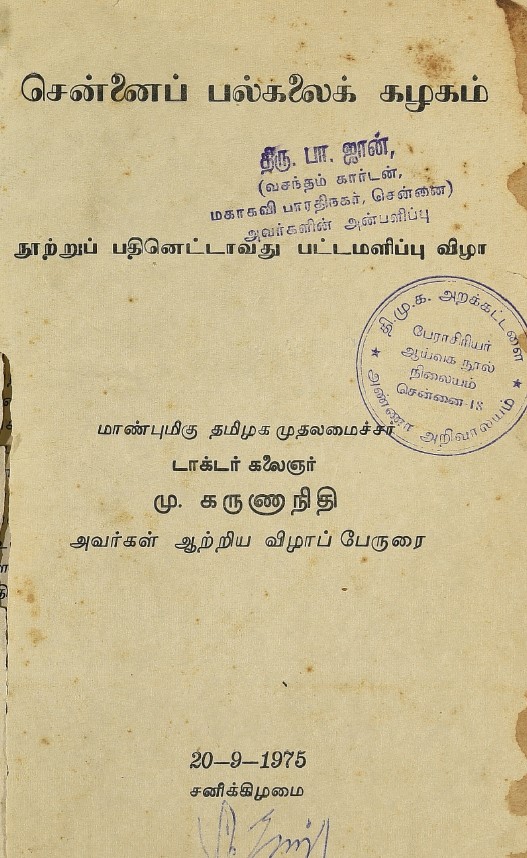 சென்னைப் பல்கலைக் கழகம்
திரு. பா. ஜான்,
(வசந்தம் கார்டன்,
மகாகவி பாரதிநகர், சென்னை)
அவர்களின் அன்பளிப்பு
நூற்றுப் பதினெட்டாவது பட்டமளிப்பு விழா
தி.மு.க. அறக்கட்டளை
பேராசிரியர்
ஆய்வக நூல்
நிலையம்
சென்னை-18
அண்ணா அறிவாலயம்
மாண்புமிகு தமிழக முதலமைச்சர்
டாக்டர் கலைஞர்
மு. கருணாநிதி
அவர்கள் ஆற்றிய விழாப் பேருரை
20-9-1975
சனிக்கிழமை